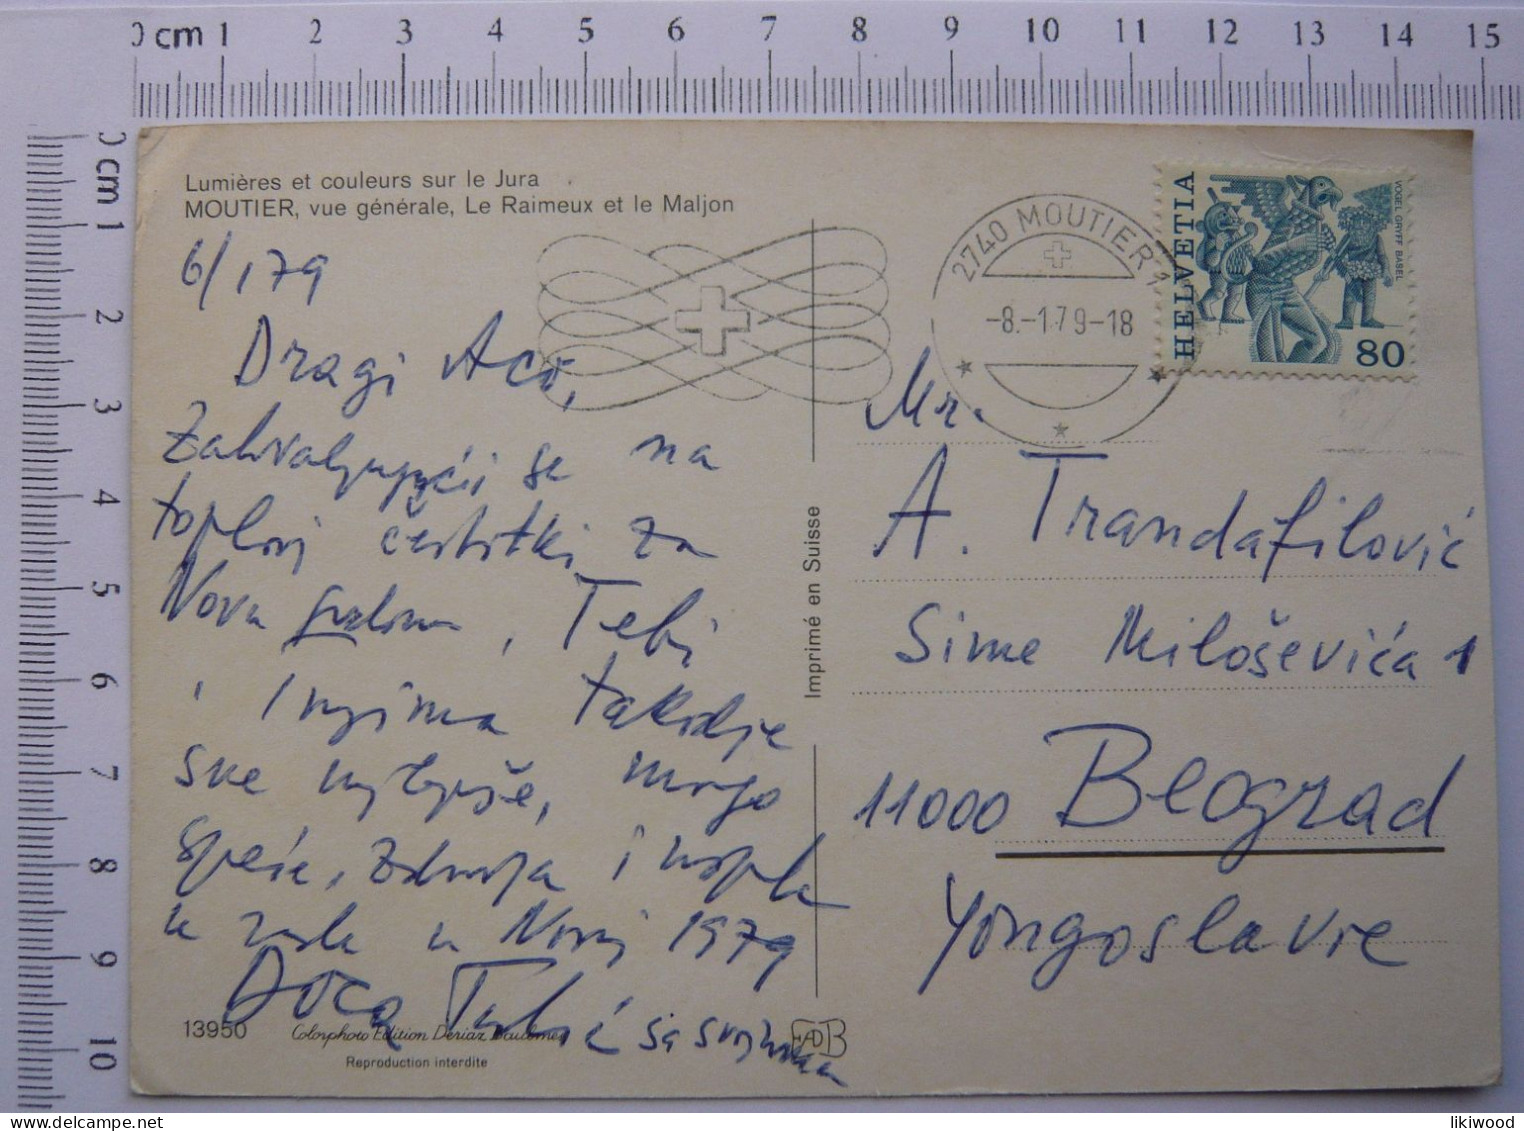 0 cm 1 2 3 4 5 6 7 8 9 10 11 12 13 14 15
0 cm 1 2 3 4 5 6 7 8 9 10
Lumières et couleurs sur le Jura
MOUTIER, vue générale, Le Raimeux et le Maljon
6/1 79
Dragi Aco,
Zahvaljujući se na
toploj čestitki za
Novu godinu, Tebi
i tvojima takodje
sve najlepše, mnogo
sreće, zdravlja i uspeha
u radu u Novoj 1979
Doca sa svojima
13950
Colorphoto Edition Deriaz Baulmes
Reproduction interdite
Imprimé en Suisse
EDB
2740 MOUTIER 1
-8.-1.79-18
HELVETIA
VOGEL GRIFF BASEL
80
Mr.
A. Trandafilović
Sime Miloševića 1
11000 Beograd
Yougoslavie
likiwood